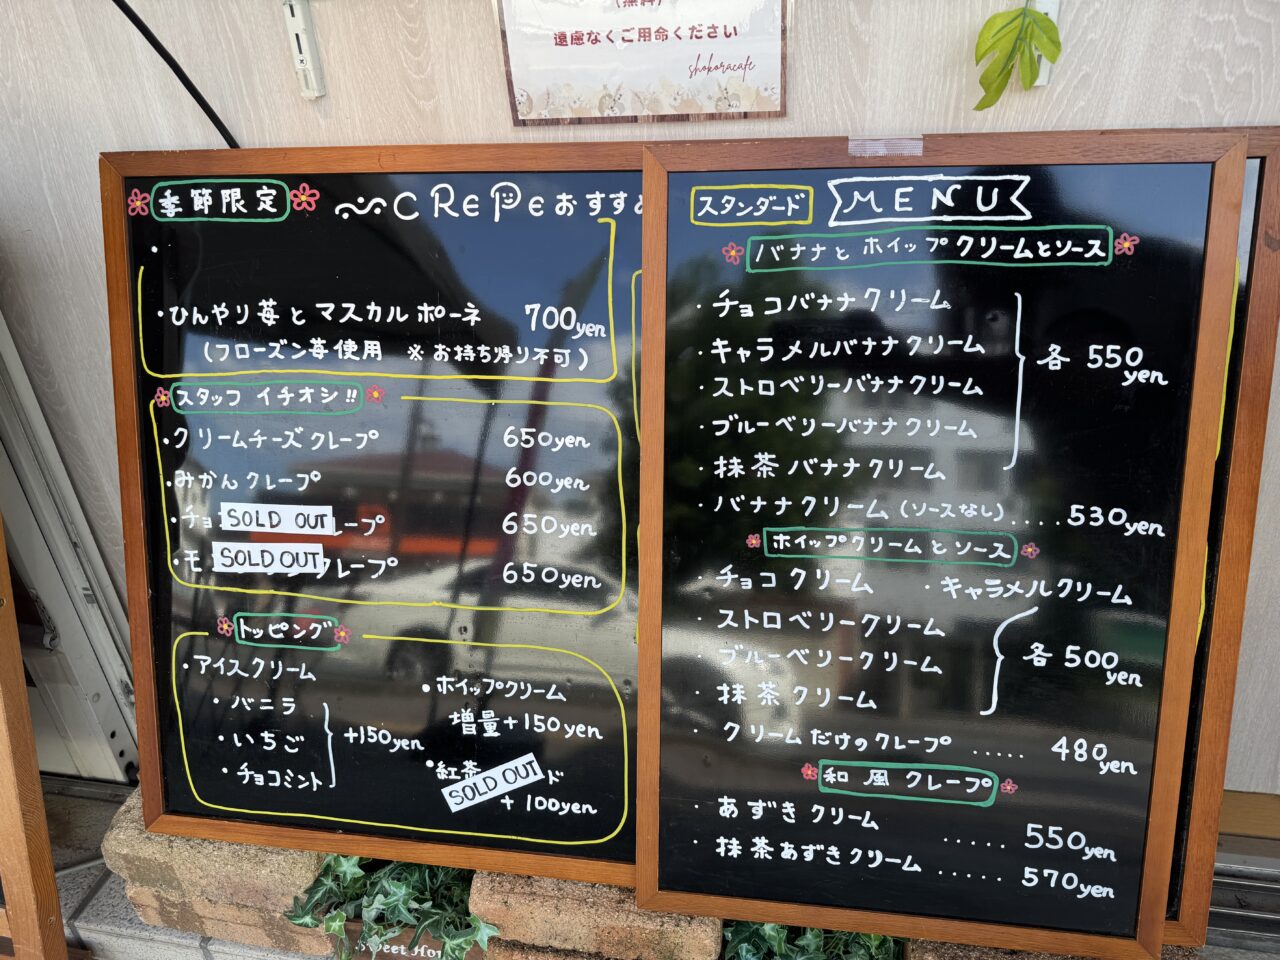 (無料)
遠慮なくご用命ください
shokoracafe
季節限定
CRePe おすすめ
・ひんやり苺とマスカルポーネ 700yen
(フローズン苺使用 ※お持ち帰り不可)
スタッフ イチオシ!!
・クリームチーズクレープ 650yen
・みかんクレープ 600yen
・チョ SOLD OUT レープ 650yen
・モ SOLD OUT クレープ 650yen
トッピング
・アイスクリーム
・バニラ
・いちご
・チョコミント
+150yen
・ホイップクリーム
増量+150yen
・紅茶 SOLD OUT ド
+100yen
スタンダード MENU
バナナとホイップクリームとソース
・チョコバナナクリーム
・キャラメルバナナクリーム
・ストロベリーバナナクリーム
・ブルーベリーバナナクリーム
・抹茶バナナクリーム
各 550yen
・バナナクリーム(ソースなし)....530yen
ホイップクリームとソース
・チョコクリーム ・キャラメルクリーム
・ストロベリークリーム
・ブルーベリークリーム
・抹茶クリーム
各 500yen
・クリームだけのクレープ ..... 480yen
和風クレープ
・あずきクリーム ..... 550yen
・抹茶あずきクリーム ..... 570yen
Sweet Ho